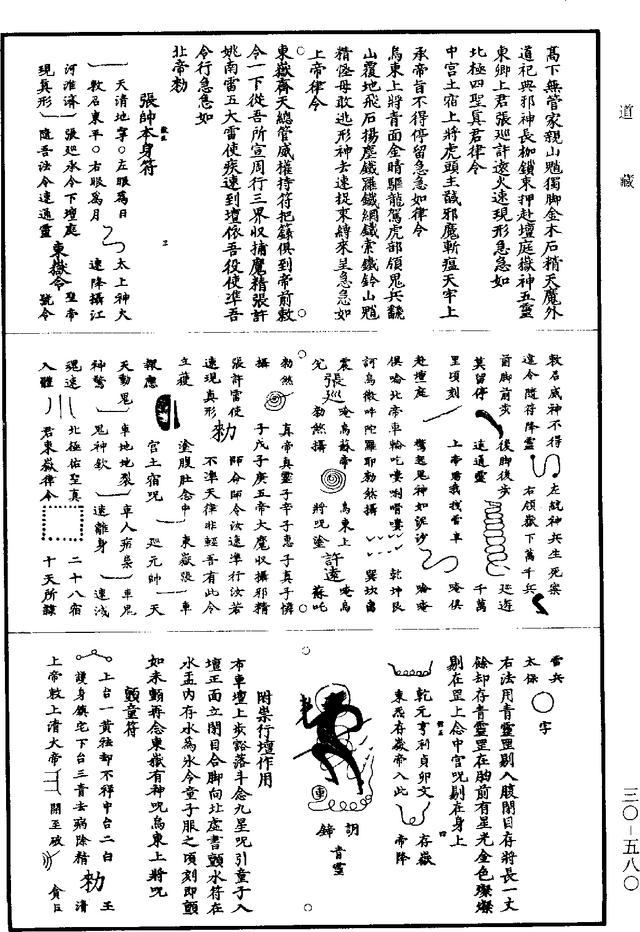 道藏
高下無管家親山魈獨脚金木石精天魔外
道祀典邪神長枷鎖束押赴壇庭嶽神五靈
東卿上君張巡許遠火速現形急急如
北極四聖真君律令
中宮土宿上將虎頭主誠邪魔斬瘟天牢上
承帝旨不得停留急急如律令
烏東上將青面金睛驅龍駕虎部領鬼兵翻
山覆地飛石揚塵鐵羅鐵網鐵索鐵鈴山魈
精怪毋敢逃形神去速捉束縛來呈急急如
上帝律令
東嶽齊天總管威權持符把籙俱到帝前敕
令一下從吾所宣周行三界收捕魔精張許
姚南雷五大雷使疾速到壇依吾役使準吾
令行急急如
北帝勑
張帥本身符
天清地寧○左眼爲日
敕召東平○右眼爲月
太上神火
速降攝江
河淮濟
張巡永令下壇庭
現真形
隨吾法令速通靈
東嶽令
聖帝
號令
敕召威神不得
違令隨符降靈
左統神兵生死案
右領嶽下萬千兵
前脚前步
莫留停
後脚後步
速通靈
巡遊
千萬
里頃刻
赴壇庭
上帝勑我找雷車
驚起鬼神如泥沙
唵俱
唅唵
俱唅北帝車輪吃嘍唎㗋嘍
訶烏微吽陀羅耶勑然攝
乾坤艮
巽坎离
震
兌
張巡
唵烏蘇帝
勑然攝
烏東上
將呪塗
許遠
唵烏
蘇吒
勑然
攝
真帝真靈子辛子惠子真子憐
子戊子庚五帝大魔收攝邪精
張許雷使
速現真形
勑
師命師令汝速準行汝若
不準天律非輕吾有此令
立獲
報應
塗腹肚念中
宮土宿呪
東嶽張
巡元帥
車
天
天動鬼
神驚
車地地裂
鬼神欽
車人病
速離身
車鬼
速滅
魂迷
入體
北極佑聖真
君東嶽律令
二十八宿
十天所隸
雷兵
太保
字
右法用青靈罡剔入腹閉目存將長一丈
餘却存青靈罡在胸前有星光金色燦燦
剔在罡上念中宮呪剔在身上
乾元亨利貞卯文
東炁存嶽帝入此
存嶽
帝降
胡
鋳
青靈
附祟行壇作用
布車壇上步豁落斗念九星呪引童子入
壇正面立閉目合脚向北處書顫水符在
水盂内存水爲氷令童子服之頃刻即顫
如未顫再念東嶽有神呪烏東上將呪
顫童符
上台一黄祛却不祥中台二白
護身鎮宅下台三青去病除精
勑
王
清
上帝敕上清大帝
開至破
貪巨
三〇—五八〇